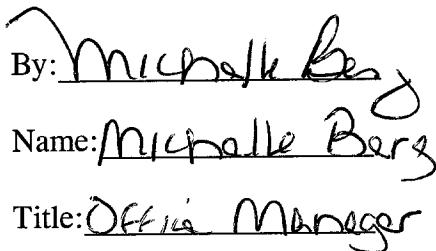 By: Michelle Berg
Name: Michelle Berg
Title: Office Manager